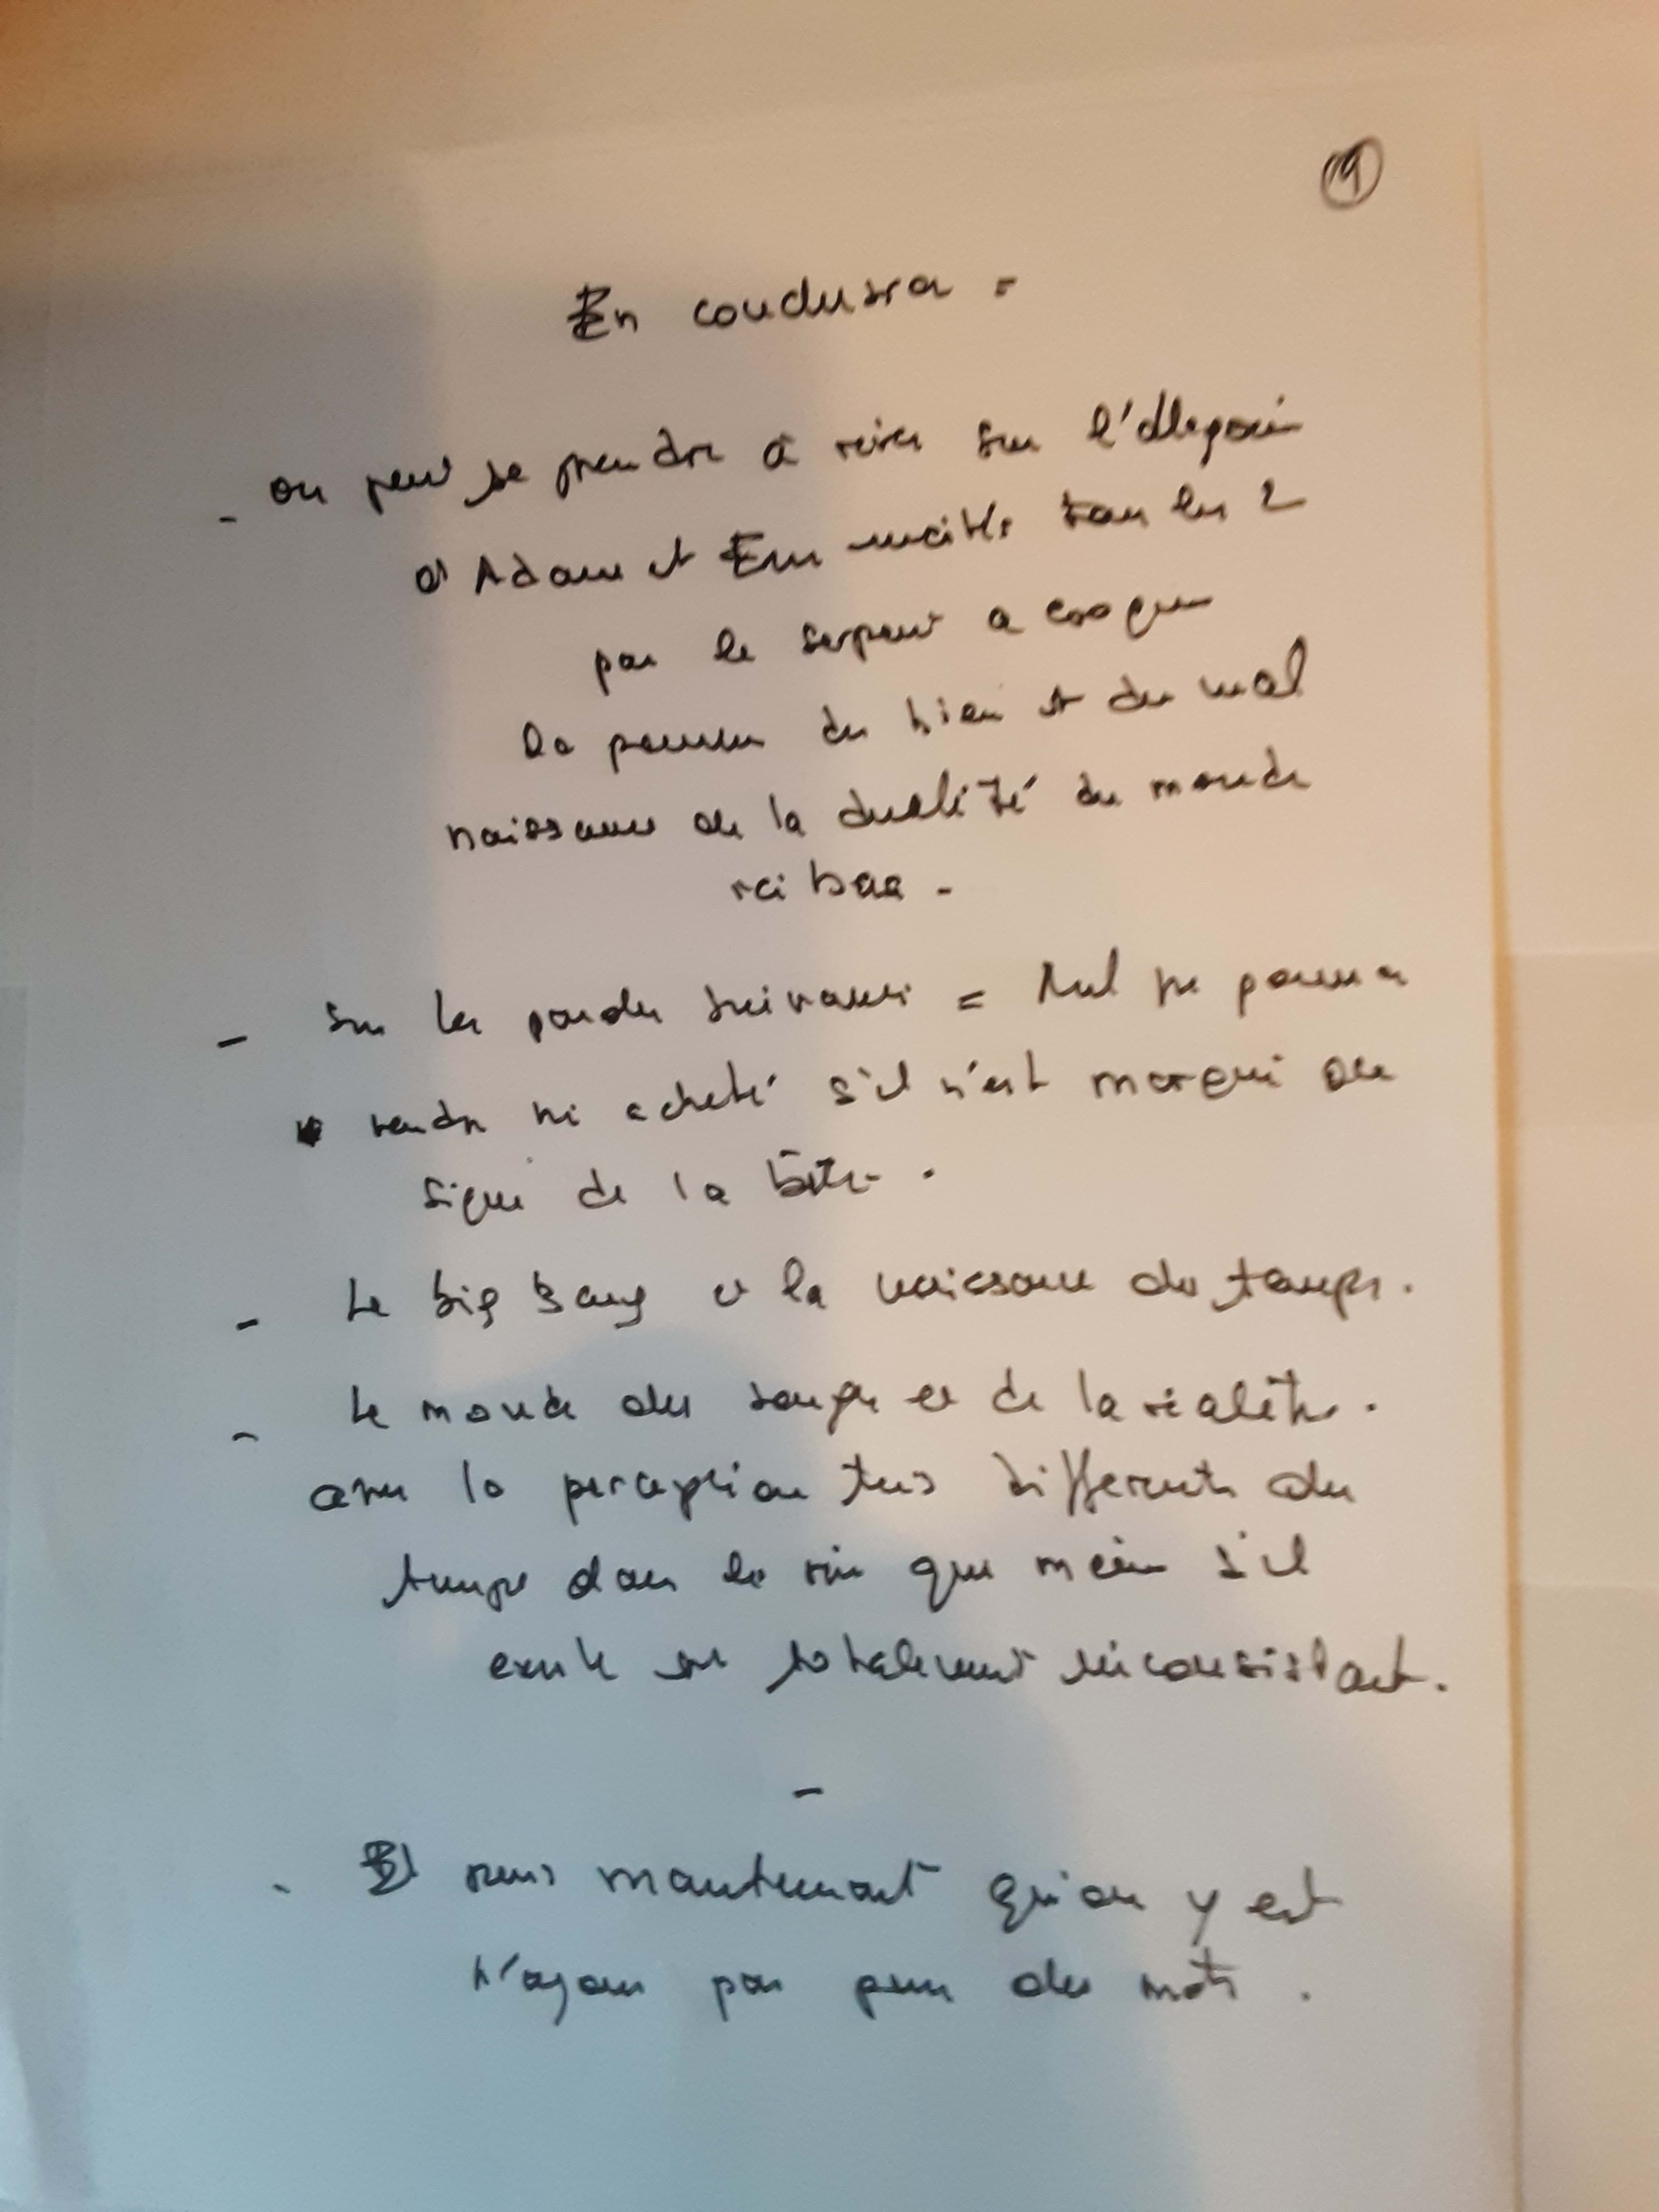 En conclusion =
- on peut se prendre à rêver sur l'allégorie
d'Adam et Eve incités tous les 2
par le serpent a croquer
la pomme du bien et du mal
naissance de la dualité du monde
ici bas -
- Sur les paroles suivantes = Nul ne pourra
vendre ni acheté s'il n'est marqué du
signe de la bête .
- Le big bang et la naissance du temps .
- Le monde du songe et de la réalité .
avec la perception très différente du
temps dans le rêve que même s'il
existe est totalement inconsistant .
-
- Et mais maintenant qu'on y est
n'ayons pas peur des mots .